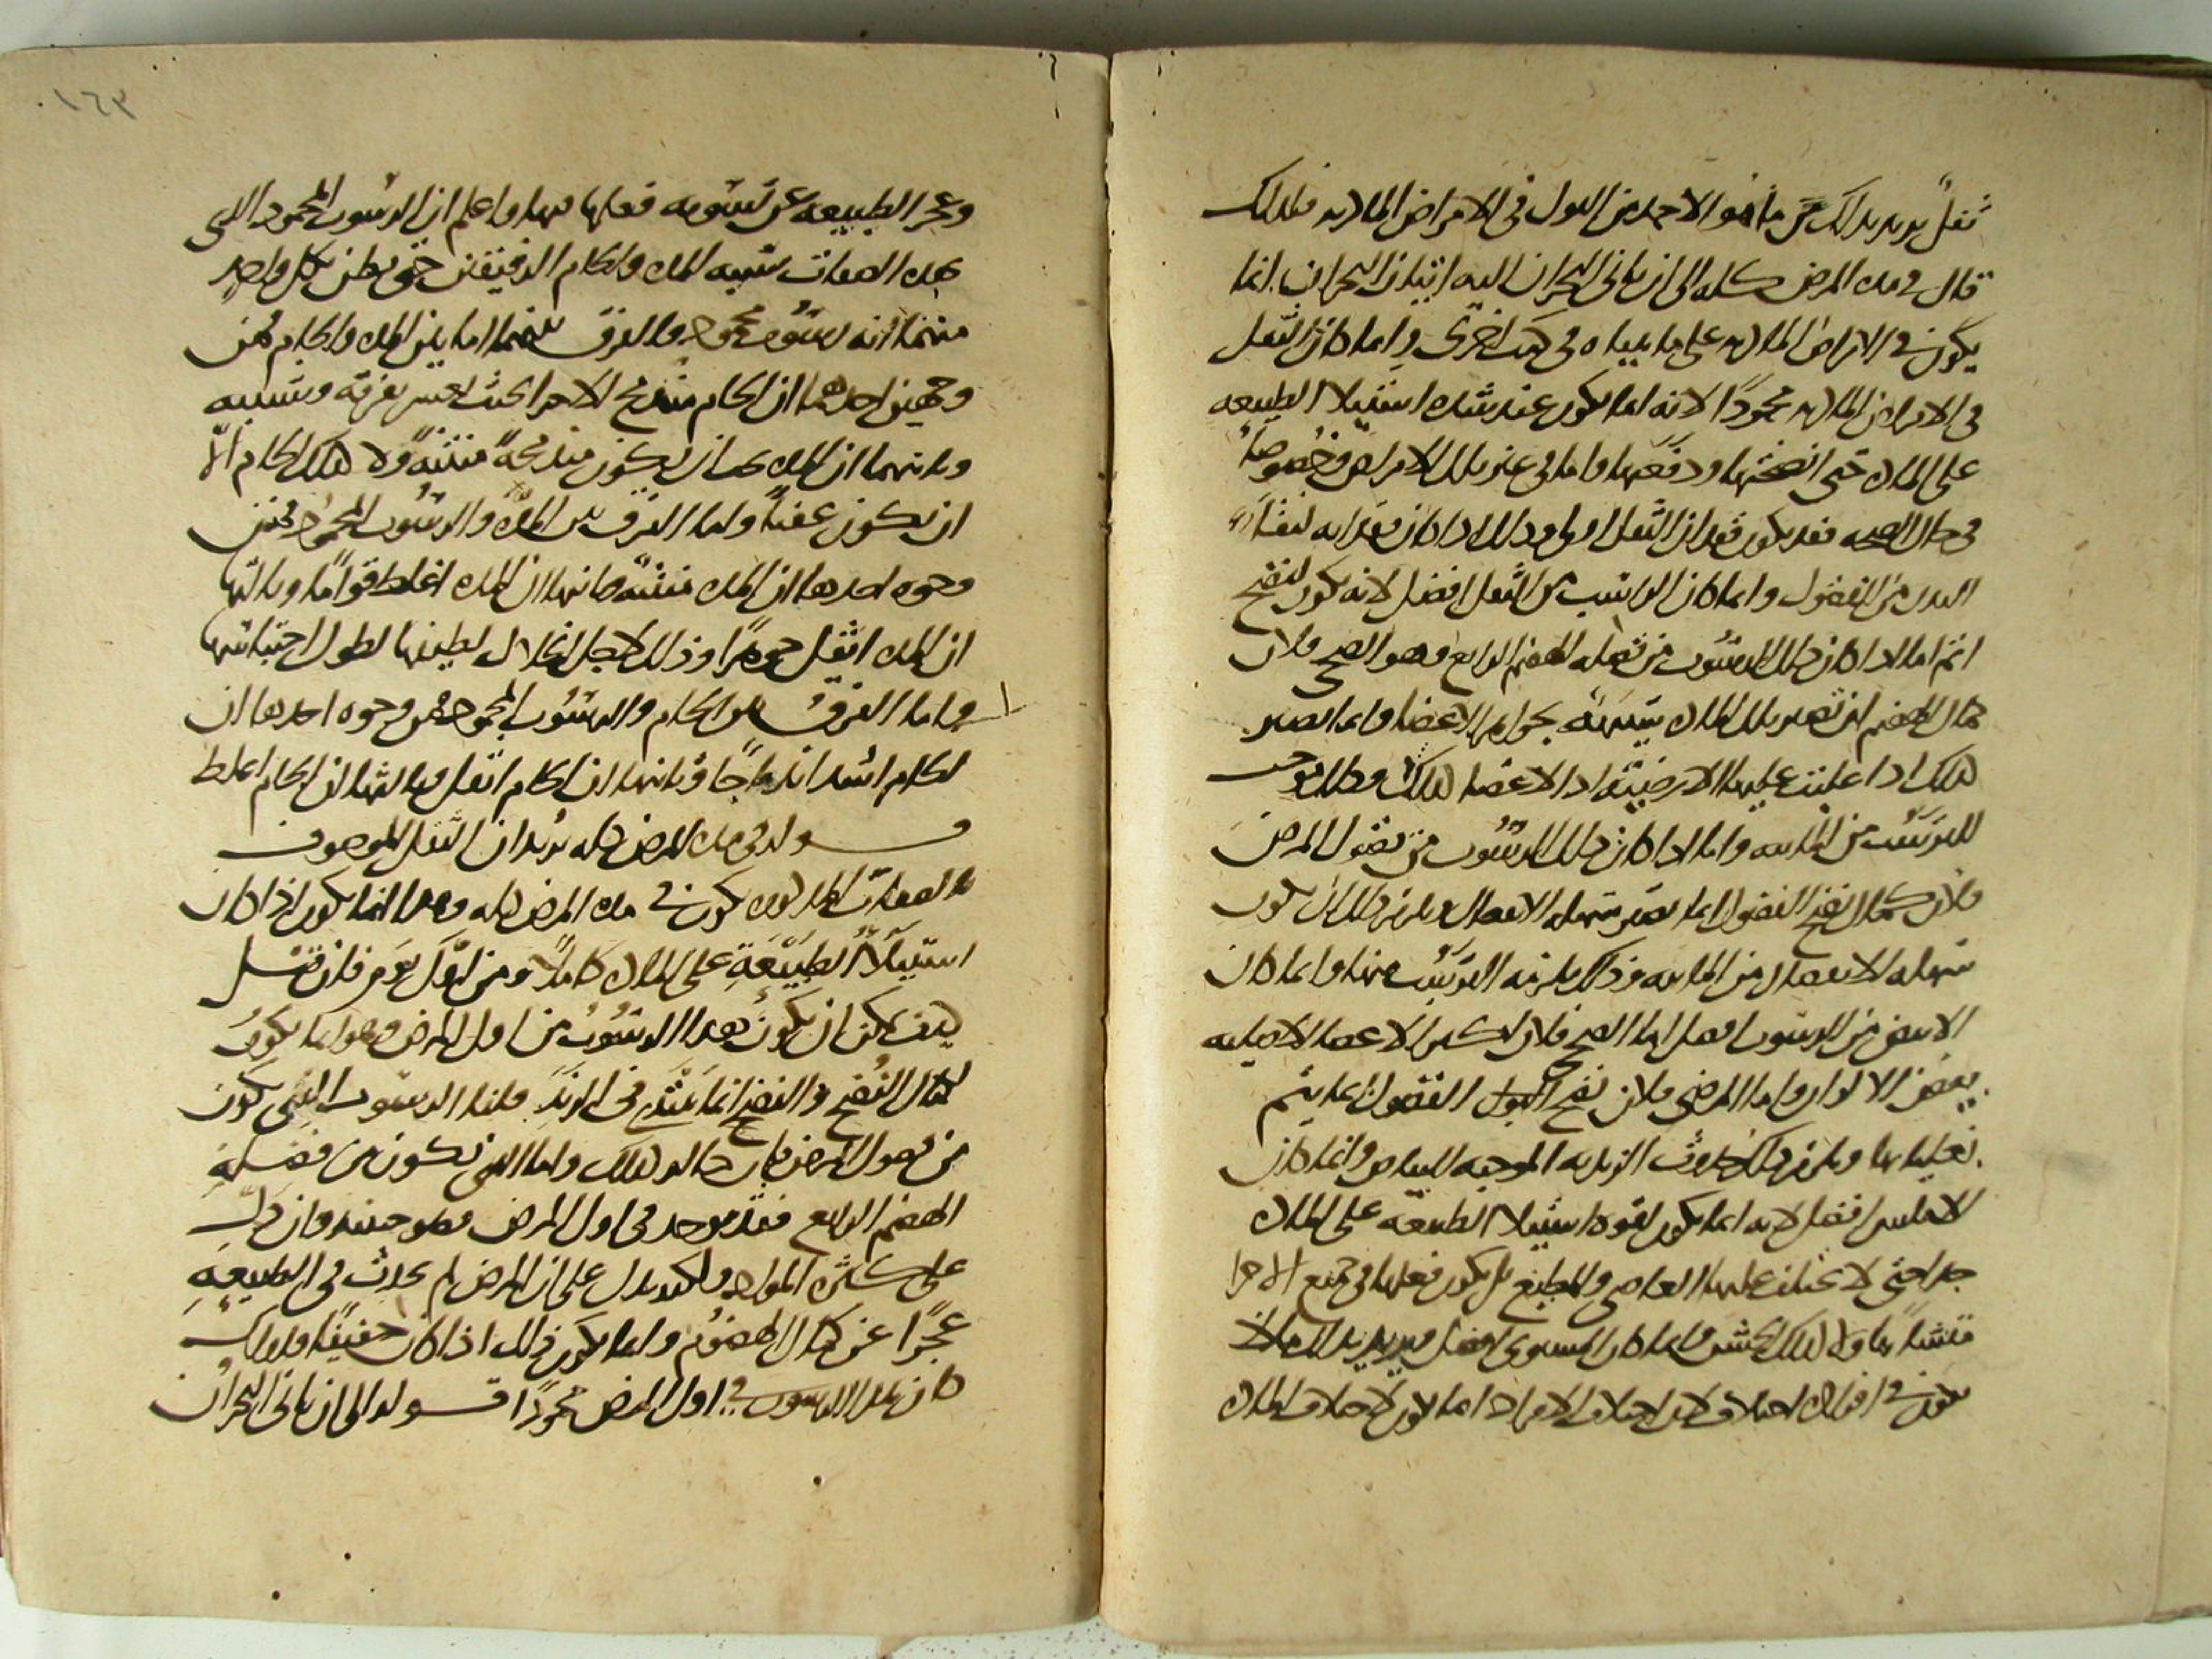 ثفل يريد بذلك من ما هو الاحمد من البول فى الامراض المادية فلذلك
قال فى مدة المرض كله الى ان ياتى البحران اليه اتيان البحران انما
يكون فى الامراض المادية على ما بيناه فى كتب اخرى وانما كان الثفل
فى الامراض المادية محمودًا لانه انما يكون عند شدة استيلا الطبيعه
على المادة حتى انضجتها ودفعتها واما فى غير تلك الامراض وخصوصًا
فى حال الصحه فقد يكون فقدان الثفل اولى وذلك اذا كان فقدانه لنقا
البدن من الفضول وانما كان الراسب من الثفل افضل لانه يكون لنضج
اتم اما اذا كان ذلك الرسوب من فضله الهضم الرابع وهو الصحى فلان
كمال الهضم ان تصير تلك المادة شبيهة بجواهر الاعضا وانما تصير
كذلك اذا غلبت عليها الارضية اذ الاعضا كذلك وذلك موجب
للترسب من المائيه واما اذا كان ذلك الرسوب من فضول المرض
فلان كمال نضج الفضول انما تصير سهله الانفصال ويلزم ذلك ان يكون
سهله الانفصال من المائيه وذلك يلزمه الترسب منها وانما كان
الابيض من الرسوب افضل اما الصحى فلان لتشبه الاعضا الاصليه
بيض الالوان واما المرضى فلان نضج البول الفضول انما يتم
بغليانها ويلزم ذلك حدوث الزبديه الموجبه للبياض وانما كان
الاملس افضل لانه انما يكون لقوة استيلا الطبيعه على المادة
جدا حتى لا يختلف عليها العاصى والمطيع بل يكون فعلها فى جميع الاجزا
متشابهًا ولا كذلك الخشن وانما كان المستوى افضل ويريد بذلك ما لا
يكون فى اجزائه اختلاف لان اختلاف الاجزاء انما يكون لاختلاف المادة
١٦٣
وعجز الطبيعه عن تسويه فعلها فيها واعلم ان الرسوب المحمود الذى
بهذه الصفات شبيه المده والخام الرقيقين حتى يظن بكل واحد
منهما انه رسوب محمود والفرق بينهما اما بين المده والخام فمن
وجهين احدهما ان الخام مندمج الاجزا بحيث لعسر تفرقه وتشبيه
وثانيهما ان المده يجب ان يكون مندمجة منتنة ولا كذلك الخام الا
ان يكون عفنًا واما الفرق بين المدة والرسوب المحمود فمن
وجوه احدها ان المده منتنة وثانيها ان المده اغلظ قوامًا وثالثها
ان المده اثقل جوهرًا وذلك لاجل انحلال لطيفها لطول احتباسها
واما الفرق بين الخام والرسوب المحمود فمن وجوه احدها ان
الخام اشد اندماجًا وثانيها ان الخام اثقل وثالثها ان الخام اغلظ
قـــوله فى مدة المرض كله يريد ان الثفل الموصوف
بالصفات المذكوره يكون فى مدة المرض كله وهذا انما يكون اذا كان
استيلآ الطبيعة على المادة كاملًا ومن اوّل يوم فان قيل
كيف يمكن ان يكون هذا الرسوب من اول المرض وهو انما يكون
لكمال النضج والنضج انما يبتدى فى التزيد قلنا الرسوب الذى يكون
من فضول المرض فان حاله كذلك واما الذى يكون من فضلة
الهضم الرابع فقد يوجد فى اول المرض وهو حينئذ وان دل
على كثرة المواد ولكنه يدل على ان المرض لم يحدث فى الطبيعهِ
عجزًا عن كمال الهضوم وانما يكون ذلك اذا كان خفيفًا ولذلك
كان هذا الرسوب فى اول المرض محمودًا قـــوله الى ان ياتى البحران